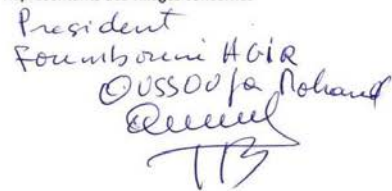 President
Foumbouni HAIR
OUSSOUfa Mohamed